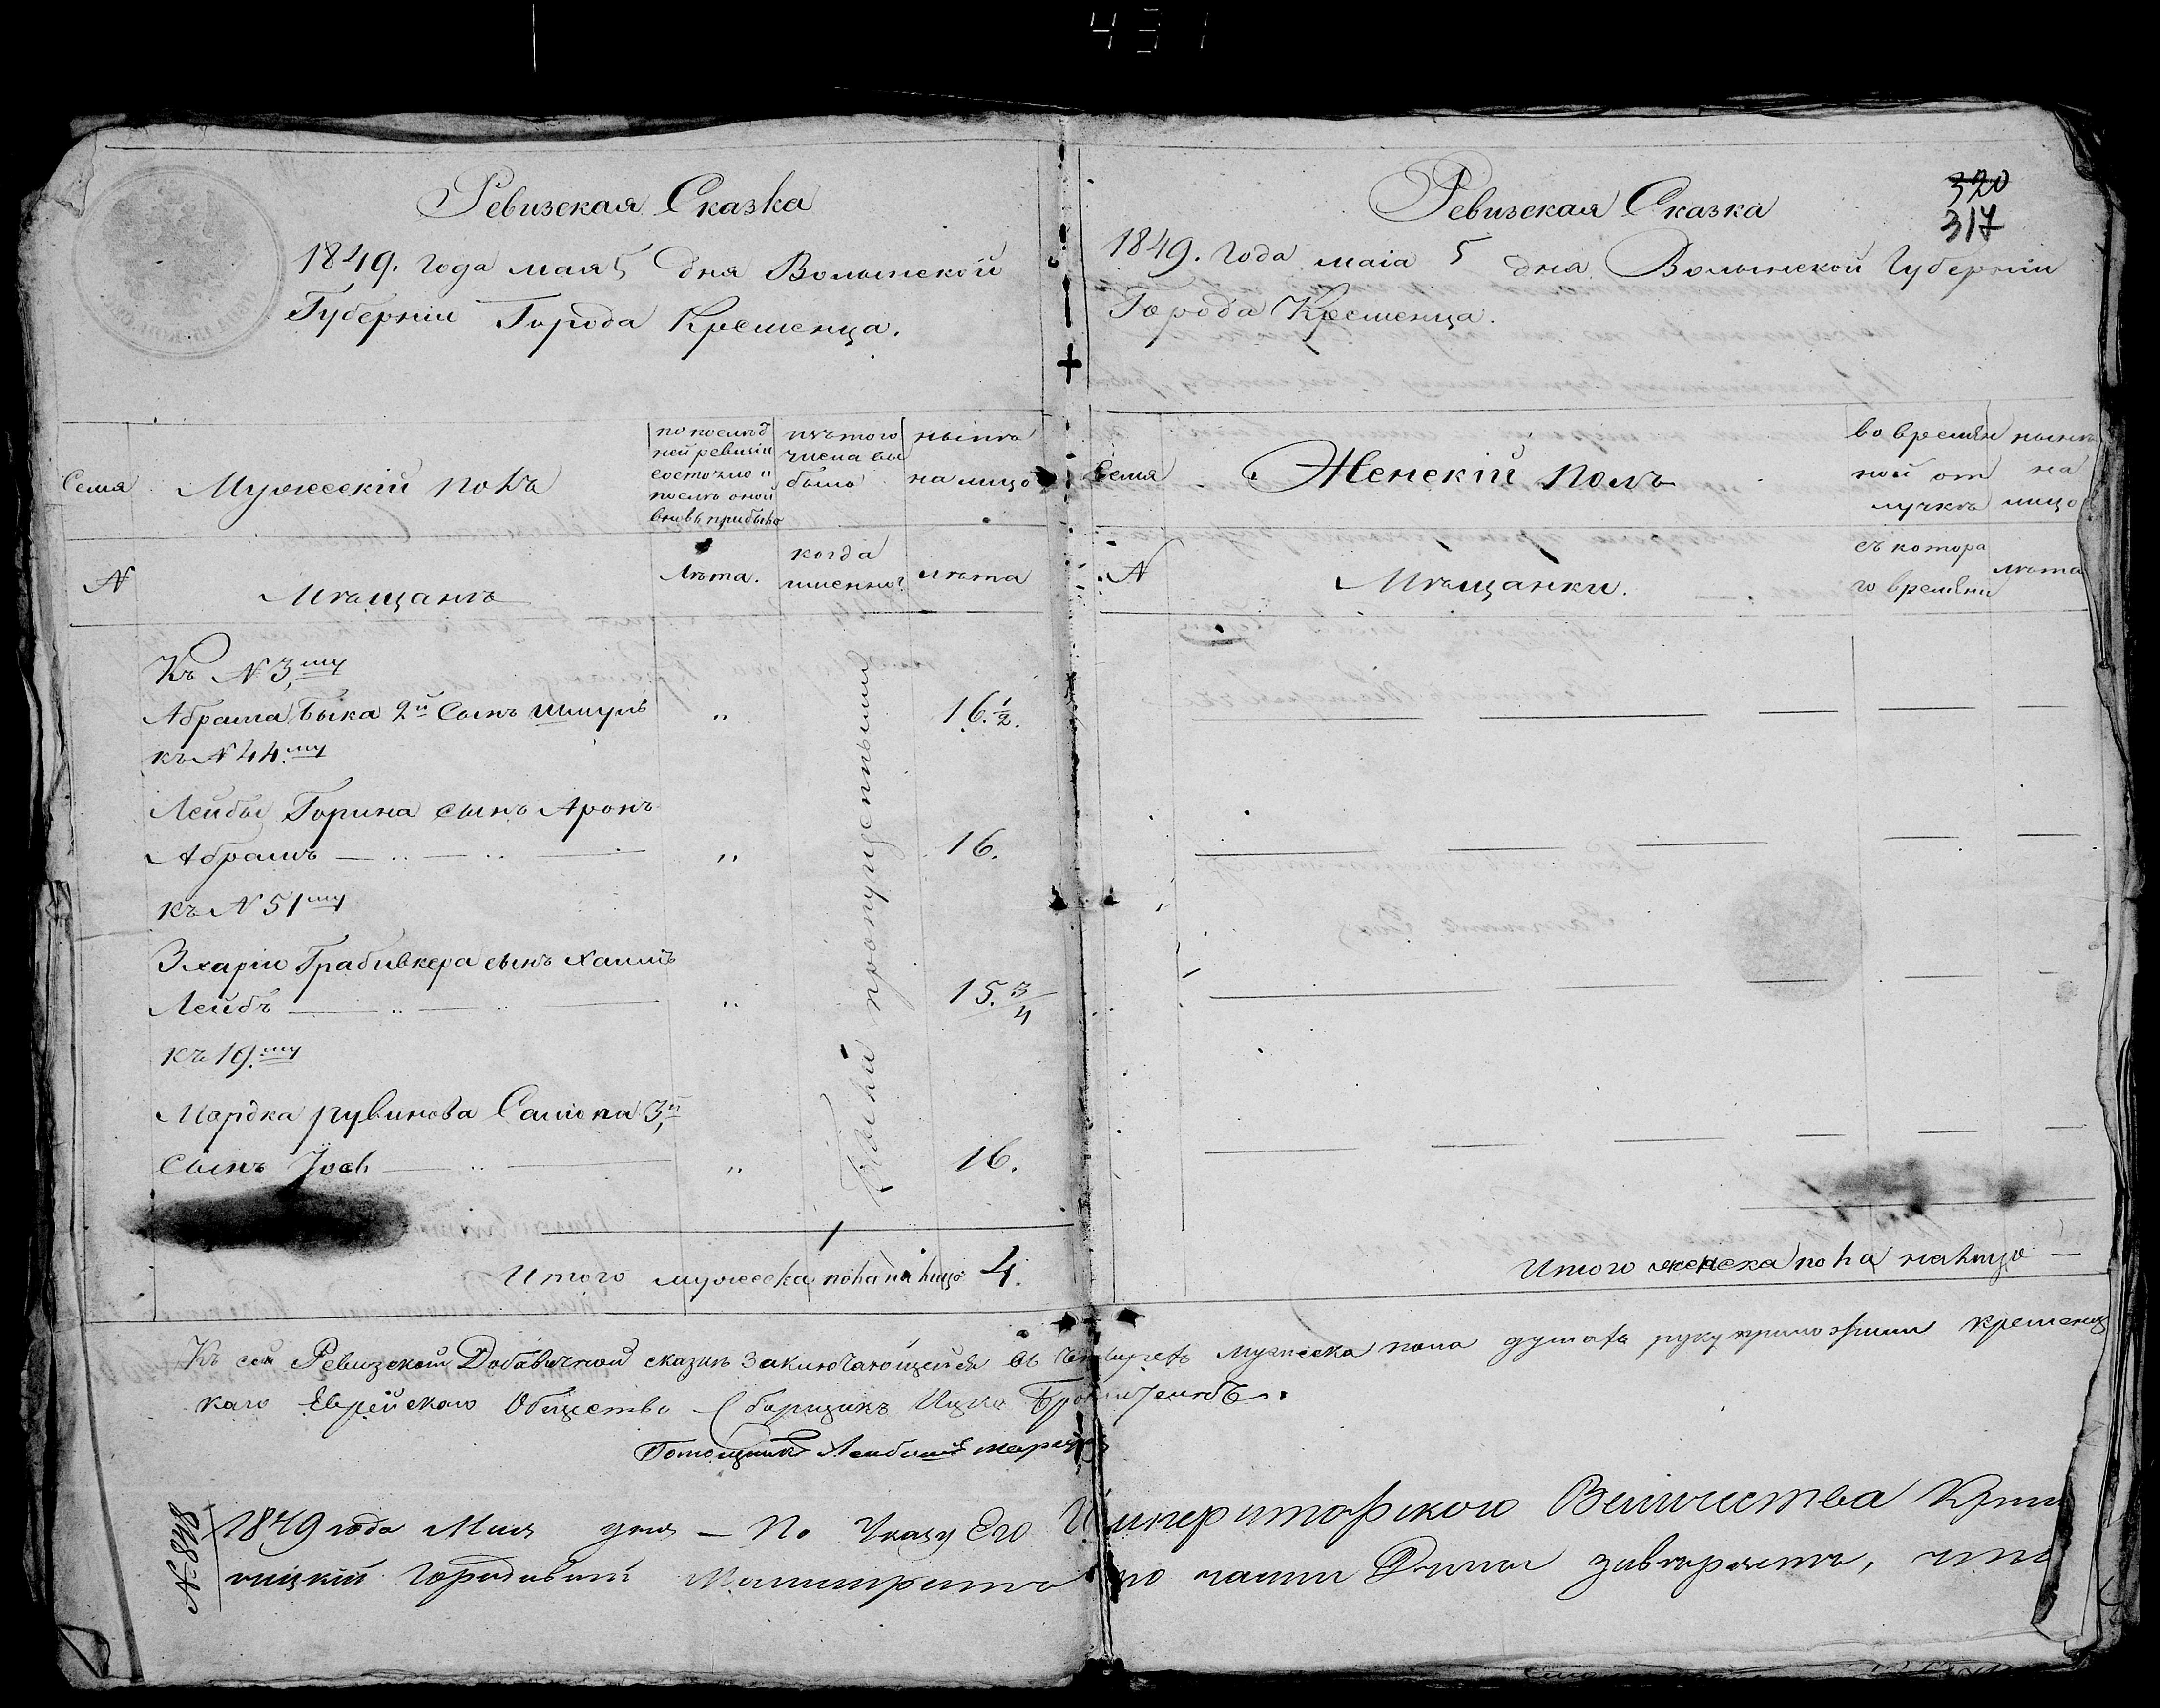 431
Ревизская Сказка
1849. года мая 5 дня Волынской
Губерніи Города Кременца.
Семя
Мужескій полъ
по послѣд
ней ревизіи
состояло и
послѣ оной
вновь прибыло
изъ того
числа вы
было
нынѣ
на лицо
N
Мѣщанъ
Лѣта.
когда
именно?
лѣта
Къ N 3,му
Абрама Быка 2й Сынъ Шмуль " 16.½.
къ N 44.му
Лейбы Горина сынъ Аронъ
Абрамъ " 16.
къ N 51му
Зхаріи Грабивкера сынъ Хаимъ
Лейбъ " 15.¾
къ 19.му
Мордка рувинова Самопа 3,й
Сынъ Іось " 16.
пропущенными
Итого мужеска пола на лицо 4.
320
317
Ревизская Сказка
1849. Года маіа 5 дня Волынской Губерніи
Города Кременца.
Семя
Женскій полъ
во времян
ной от
лучкѣ
нынѣ
на
лицо
N
Мѣщанки.
съ котора
го времѣни
лѣта
Итого женска пола налицо —
Къ сей Ревизской Добавочной сказкѣ заключающейся въ четырехъ мужеска пола душахъ руку приложили кременец
каго Еврейского Общества Сборщикъ Ицко
Помощникъ
N 848
1849 года Мая дня — По Указу Его Императорского Величества Крем
ницкій Городовый Магистратъ по части Думы завѣряетъ, что